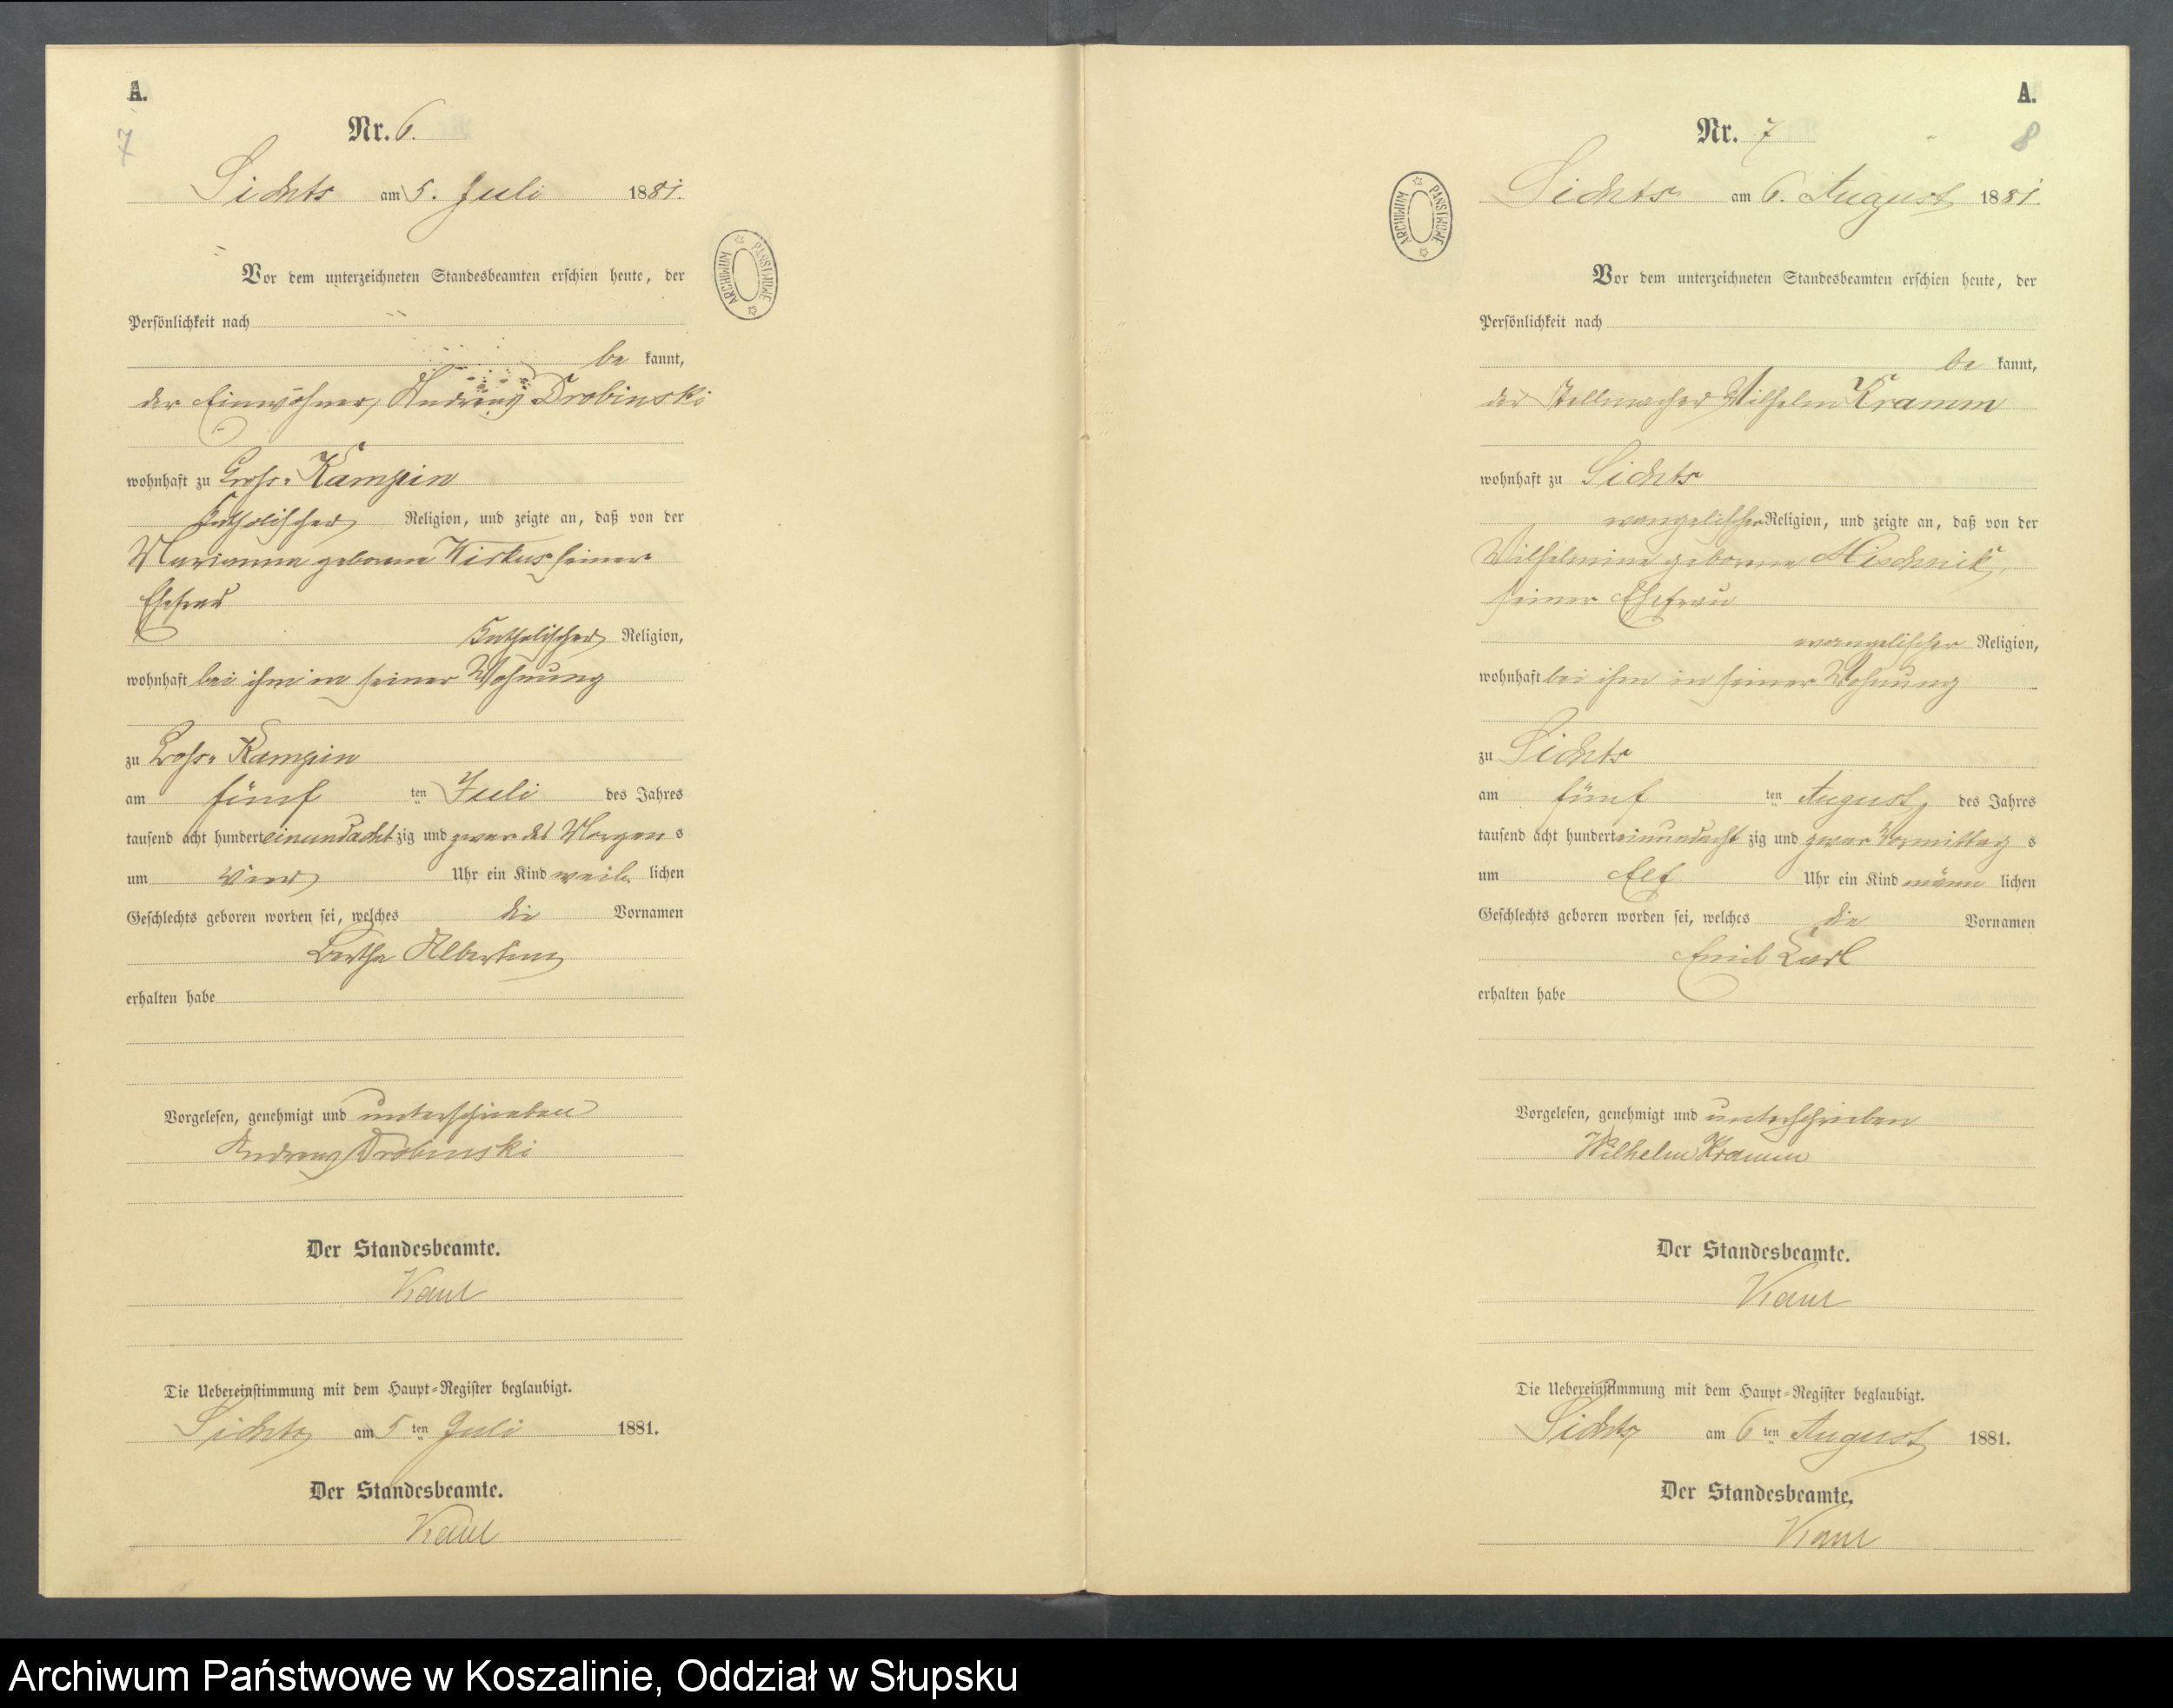 A.
7
Nr. 6.
Sichts am 5. Juli 1881.
Vor dem unterzeichneten Standesbeamten erschien heute, der
Persönlichkeit nach
be kannt,
der Einwohner, Andreas Drobinski
wohnhaft zu Gross-Kampin
katholischer Religion, und zeigte an, daß von der
Marianna geborene Wirkus seiner
Ehefrau
katholischer Religion,
wohnhaft bei ihm in seiner Wohnung
zu Gross-Kampin
am fünf ten Juli des Jahres
tausend acht hundert einundacht zig und zwar des Morgen s
um vier Uhr ein Kind weib lichen
Geschlechts geboren worden sei, welches die Vornamen
Bertha Albertine
erhalten habe
Vorgelesen, genehmigt und unterschrieben
Andreas Drobinski
Der Standesbeamte.
Die Uebereinstimmung mit dem Haupt-Register beglaubigt.
Sichts am 5 ten Juli 1881.
Der Standesbeamte.
ARCHIWUM PAŃSTWOWE
A.
8
Nr. 7
Sichts am 6. August 1881.
Vor dem unterzeichneten Standesbeamten erschien heute, der
Persönlichkeit nach
be kannt,
der Stellmacher Wilhelm Kramm
wohnhaft zu Sichts
evangelischer Religion, und zeigte an, daß von der
Wilhelmine geborene Mischnick,
seiner Ehefrau
evangelischer Religion,
wohnhaft bei ihm in seiner Wohnung
zu Sichts
am fünf ten August des Jahres
tausend acht hundert einundacht zig und zwar Vormittag s
um elf Uhr ein Kind männ lichen
Geschlechts geboren worden sei, welches die Vornamen
Emil Carl
erhalten habe
Vorgelesen, genehmigt und unterschrieben
Wilhelm Kramm
Der Standesbeamte.
Die Uebereinstimmung mit dem Haupt-Register beglaubigt.
Sichts am 6 ten August 1881.
Der Standesbeamte.
ARCHIWUM PAŃSTWOWE
Archiwum Państwowe w Koszalinie, Oddział w Słupsku